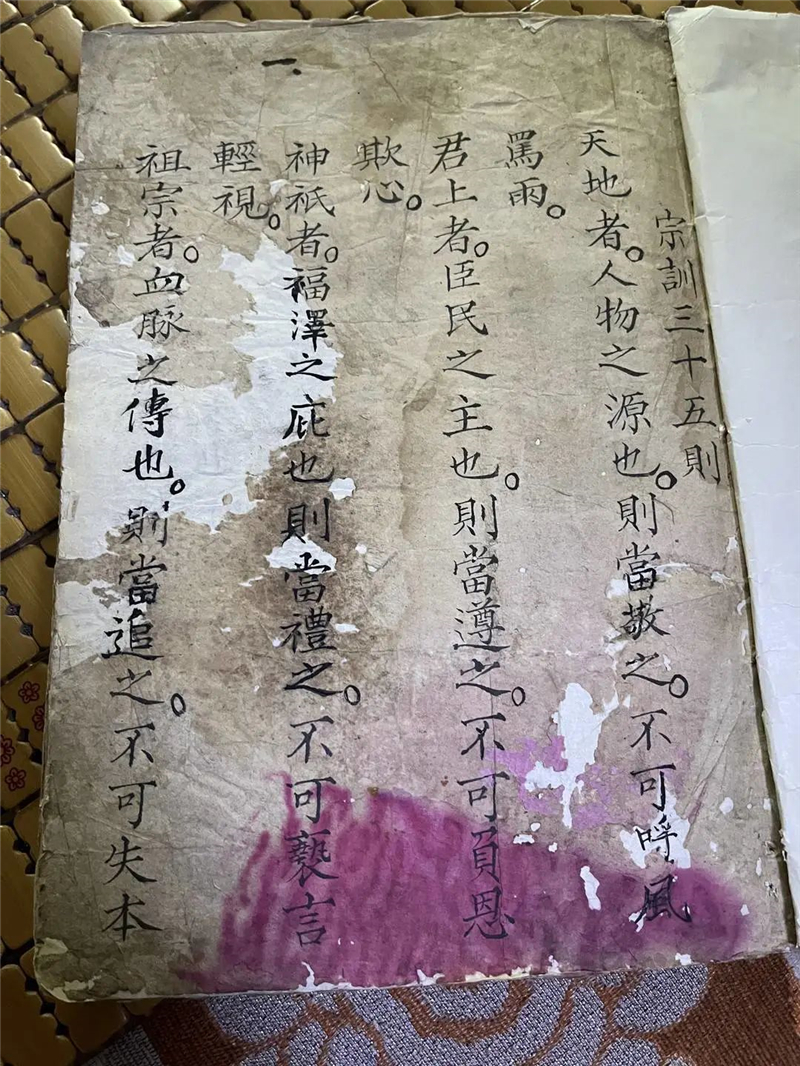 宗訓三十五則
天地者。人物之源也。則當敬之。不可呼風
罵雨。
君上者。臣民之主也。則當遵之。不可負恩
欺心。
神祇者。福澤之庇也則當禮之。不可褻言
輕視。
祖宗者。血脉之傳也。則當追之。不可失本
一.